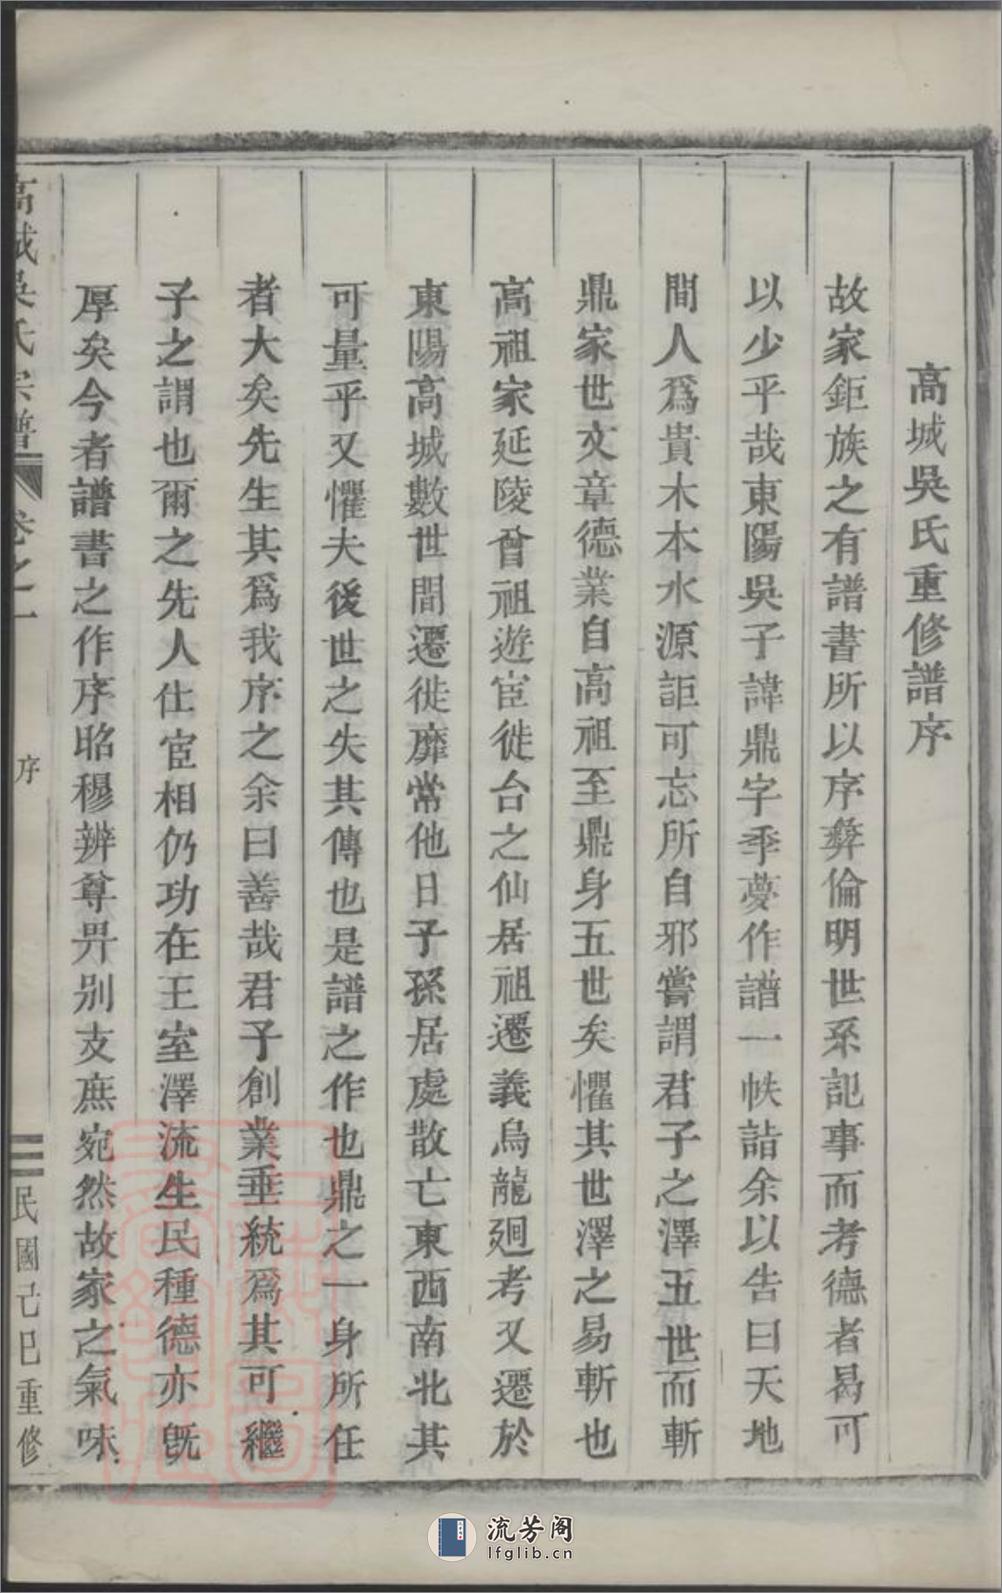 高城吳氏重修譜序
故家鉅族之有譜書所以序彝倫明世系記事而考德者曷可
以少乎哉東陽吳子諱鼎字季夢作譜一帙詣余以告曰天地
間人爲貴木本水源詎可忘所自邪嘗謂君子之澤五世而斬
鼎家世文章德業自高祖至鼎身五世矣懼其世澤之易斬也
高祖家延陵曾祖遊宦徙台之仙居祖遷義烏龍廻考又遷於
東陽高城數世間遷徙靡常他日子孫居處散亡東西南北其
可量乎又懼夫後世之失其傳也是譜之作也鼎之一身所任
者大矣先生其爲我序之余曰善哉君子創業垂統爲其可繼
子之謂也爾之先人仕宦相仍功在王室澤流生民種德亦旣
厚矣今者譜書之作序昭穆辨尊畀别支庶宛然故家之氣味
高城吳氏宗譜 卷之一 序 民國己巳重修
流芳阁
lfglib.cn